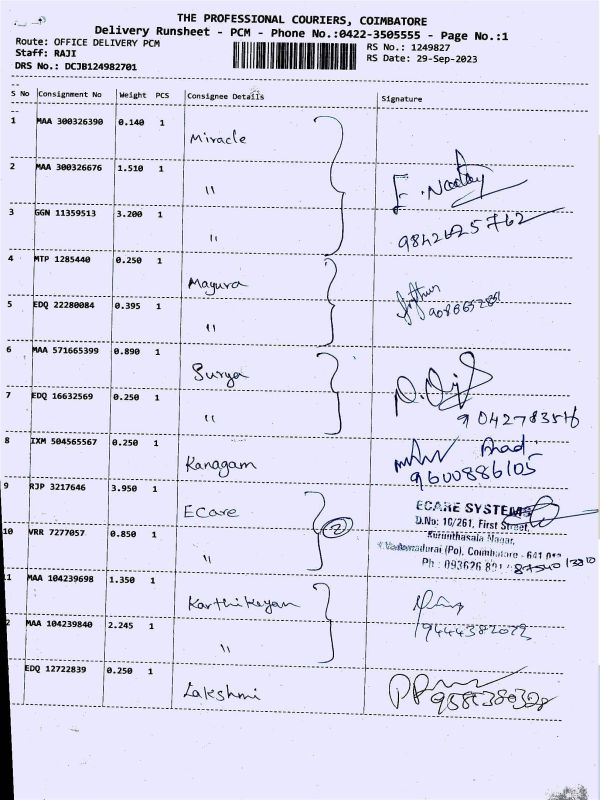 THE PROFESSIONAL COURIERS, COIMBATORE
Delivery Runsheet - PCM - Phone No.:0422-3505555 - Page No.:1
Route: OFFICE DELIVERY PCM
RS No.: 1249827
Staff: RAJI
RS Date: 29-Sep-2023
DRS No.: DCJB124982701
S No Consignment No Weight PCS Consignee Details Signature
1 MAA 300326390 0.140 1 Miracle
2 MAA 300326676 1.510 1 "
3 GGN 11359513 3.200 1 "
9842625762
4 MTP 1285440 0.250 1 Mayura
5 EDQ 22280084 0.395 1 "
6 MAA 571665399 0.890 1 Surya
7 EDQ 16632569 0.250 1 "
8 IXM 504565567 0.250 1 Kanagam
9600886105
9 RJP 3217646 3.950 1 Ecare
ECARE SYSTEMS
D.No: 10/261, First Street,
Kurunthasala Nagar,
10 VRR 7277057 0.850 1 " 2
Vadamadurai (Po), Coimbatore - 641
Ph : 093626
11 MAA 104239698 1.350 1 Karthikeyan
2 MAA 104239840 2.245 1 "
EDQ 12722839 0.250 1 Lakshmi